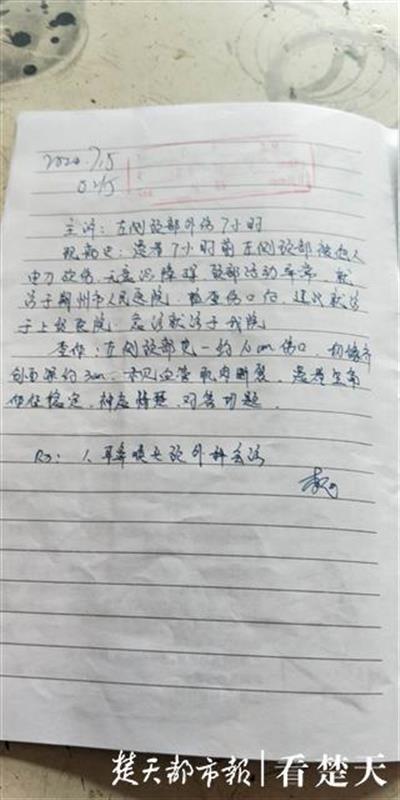 2020.7.5
0:45
主诉：左侧颈部外伤7小时
现病史：患者7小时前左侧颈部被他人
用刀砍伤，无意识障碍，颈部活动正常，就
诊于荆州市人民医院，检查伤口后，建议就诊
于上级医院，急诊就诊于我院
查体：左侧颈部见一约10cm伤口，切缘齐
创面深约3cm，未见血管肌肉断裂，患者生命
体征稳定，神志清楚，对答切题。
R：1、耳鼻喉头颈外科会诊
楚天都市報|看楚天